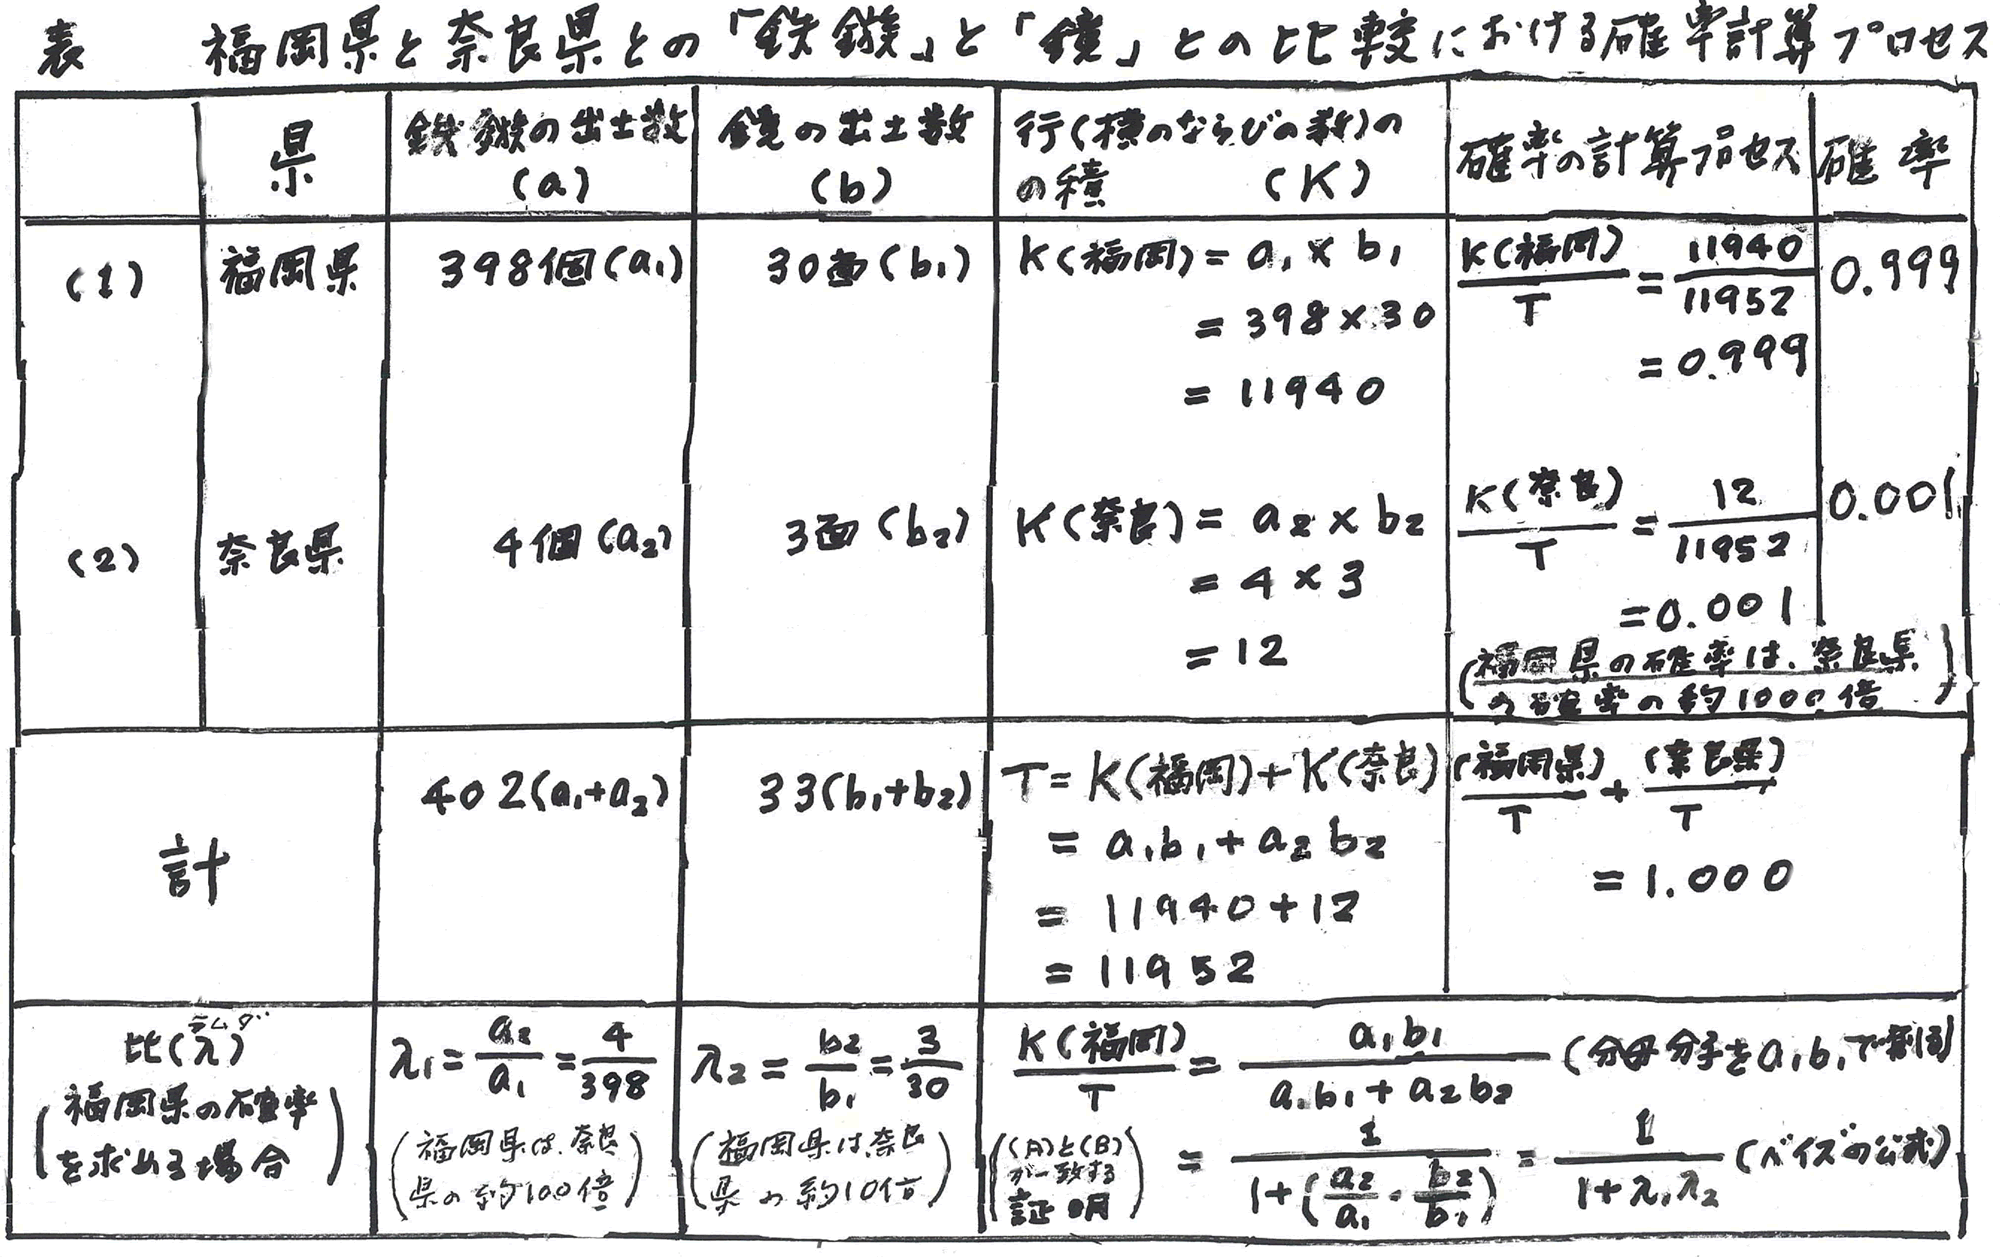 表 福岡県と奈良県との「鉄鏃」と「鏡」との比較における確率計算プロセス
県
鉄鏃の出土数
(a)
鏡の出土数
(b)
行(横のならびの数)の
の積 (K)
確率の計算プロセス
確率
(1)
福岡県
398個(a₁)
30面(b₁)
K(福岡)= a₁ × b₁
= 398×30
= 11940
K(福岡)/T = 11940/11952
= 0.999
0.999
(2)
奈良県
4個(a₂)
3面(b₂)
K(奈良)= a₂ × b₂
= 4 × 3
= 12
K(奈良)/T = 12/11952
=0.001
0.001
(福岡県の確率は、奈良県
の確率の約1000倍)
計
402(a₁+a₂)
33(b₁+b₂)
T = K(福岡)+K(奈良)
= a₁b₁+a₂b₂
= 11940+12
= 11952
(福岡県)/T + (奈良県)/T
= 1.000
ラムダ
比(λ)
(福岡県の確率
を求める場合)
λ₁ = a₂/a₁ = 4/398
(福岡県は、奈良
県の約100倍)
λ₂ = b₂/b₁ = 3/30
(福岡県は、奈良
県の約10倍)
K(福岡)/T = a₁b₁/(a₁b₁+a₂b₂) (分母分子をa₁b₁で割る)
((A)と(B)
が一致する
証明)
= 1/(1+(a₂/a₁・b₂/b₁)) = 1/(1+λ₁λ₂) (ベイズの公式)